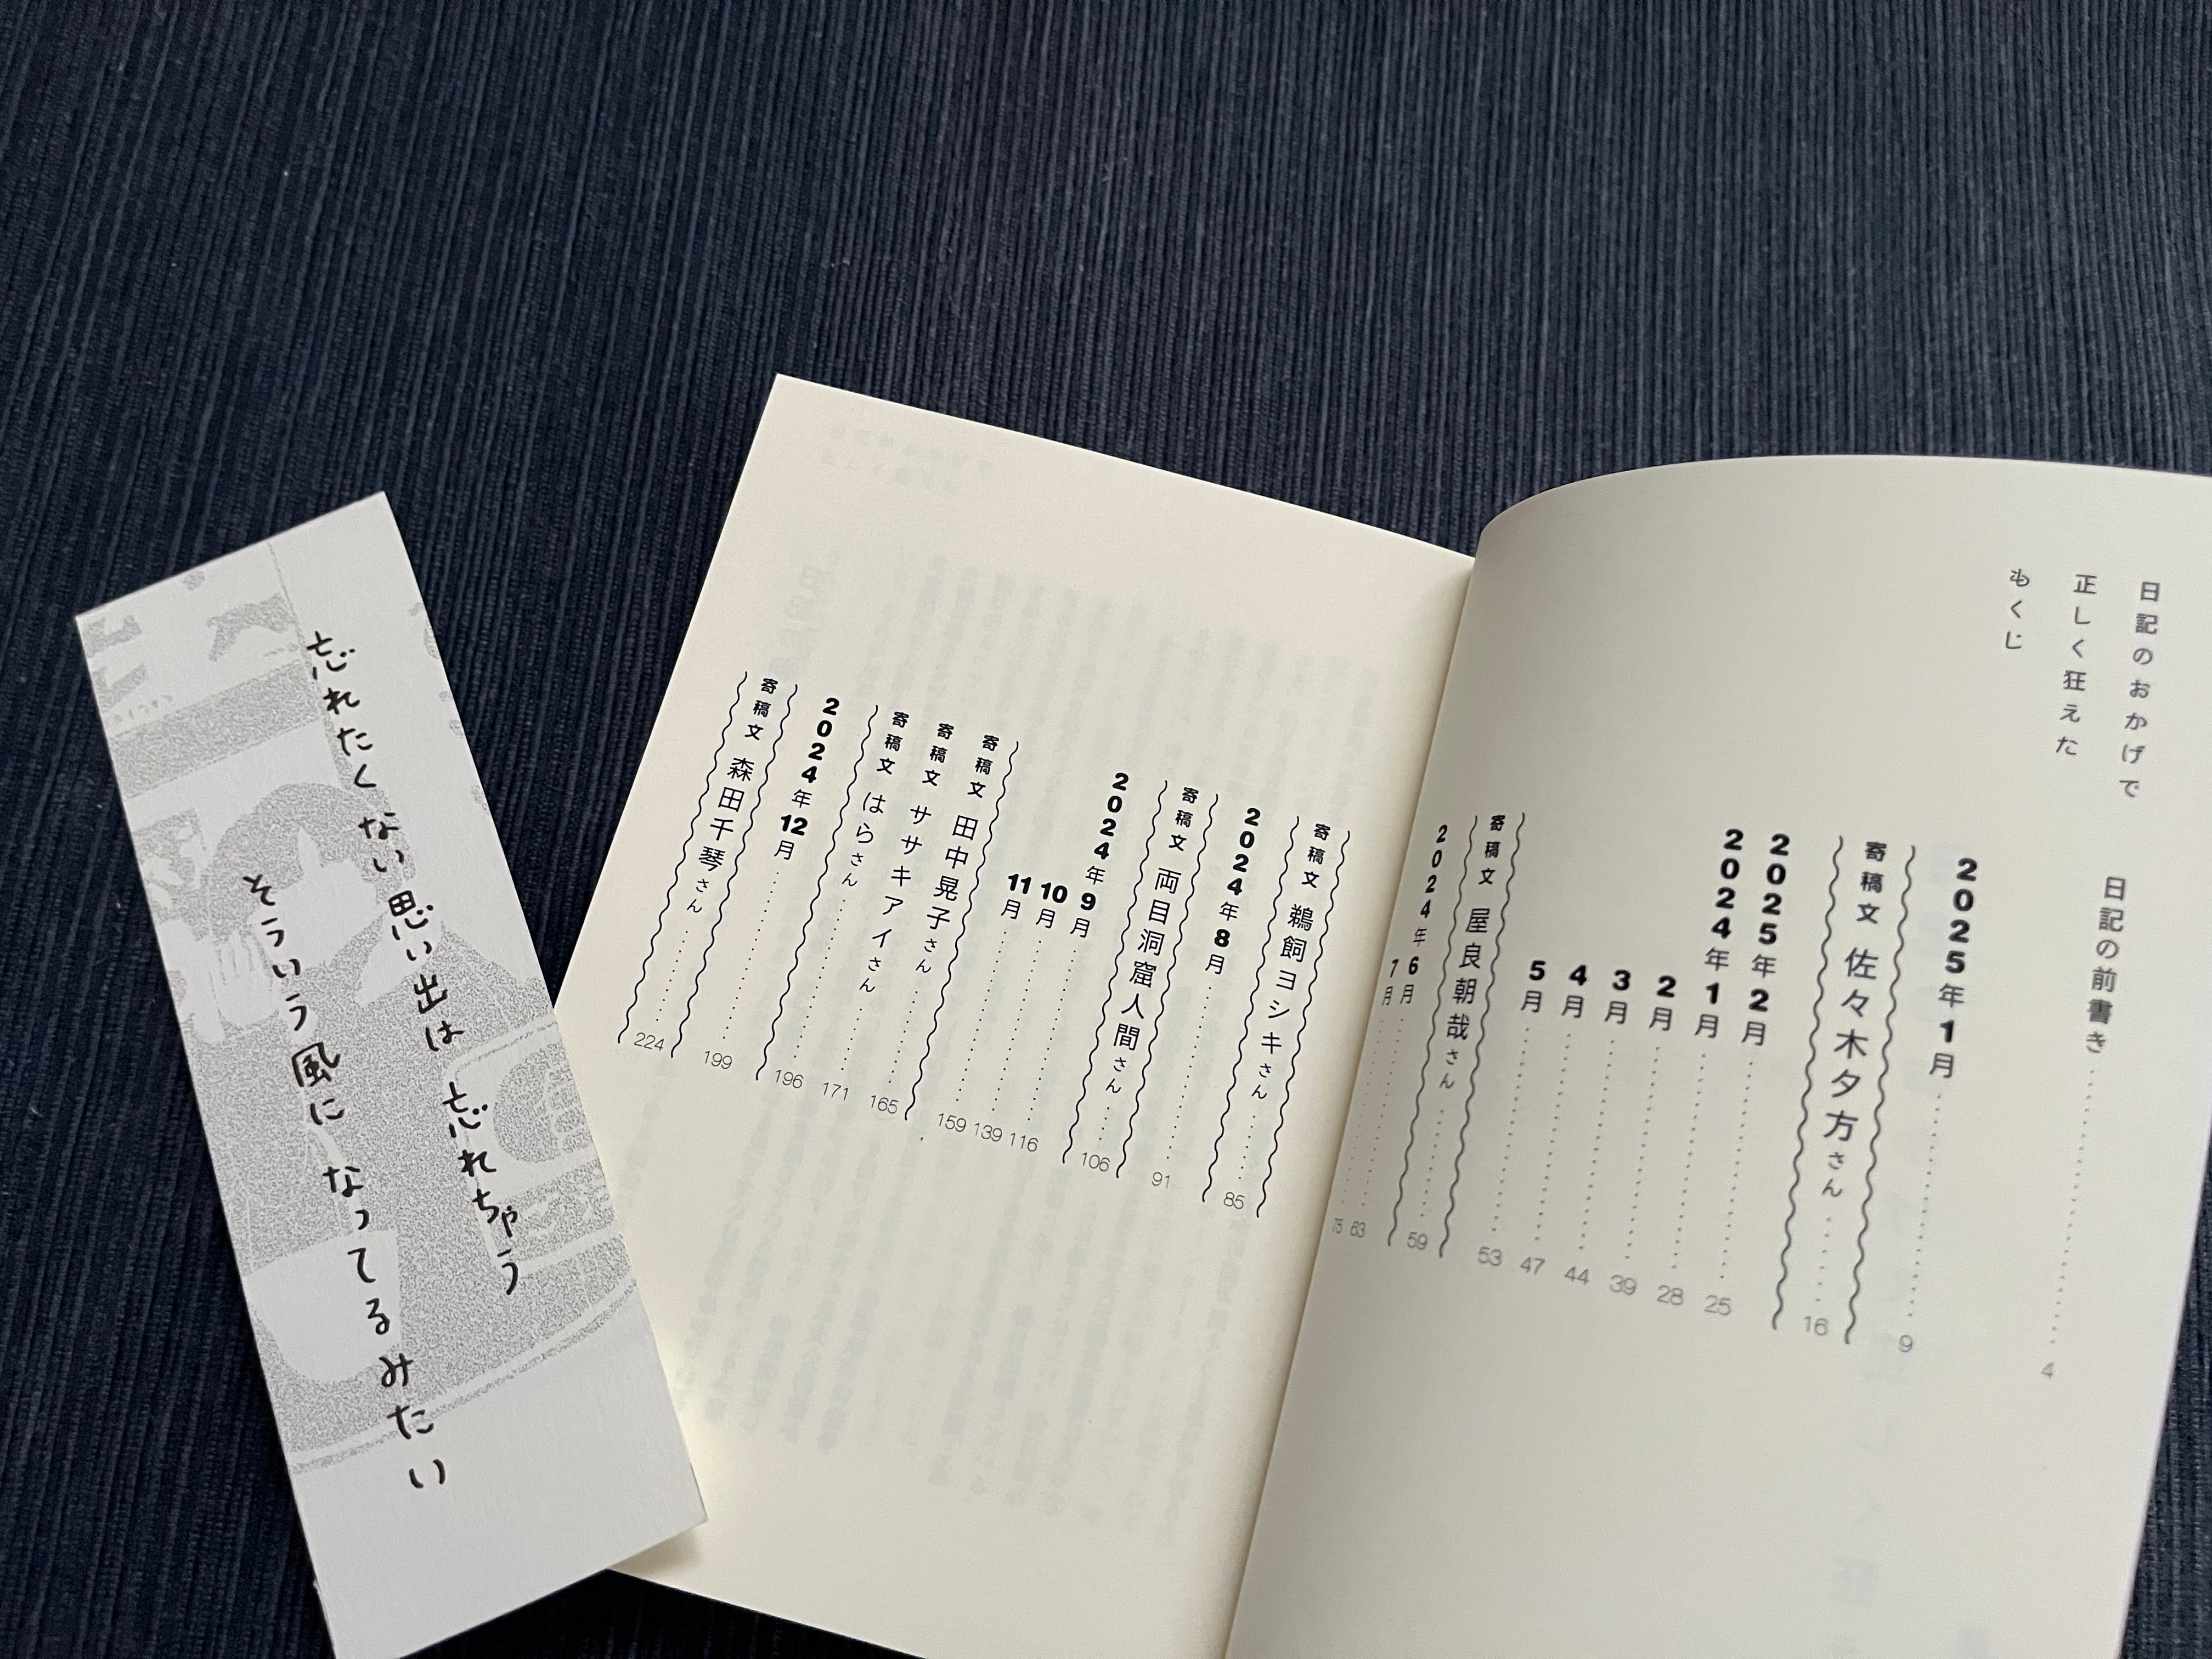 日記のおかげで
正しく狂えた
もくじ
日記の前書き……………………4
2025年1月……………………9
寄稿文 佐々木夕方さん………16
2025年2月……………………25
2024年1月……………………28
2月……………………39
3月……………………44
4月……………………47
5月……………………53
寄稿文 屋良朝哉さん………59
2024年6月……………………63
7月……………………75
寄稿文 鵜飼ヨシキさん………85
2024年8月……………………91
寄稿文 両目洞窟人間さん………106
2024年9月……………………116
10月……………………139
11月……………………159
寄稿文 田中晃子さん………165
寄稿文 ササキアイさん………171
寄稿文 はらさん………196
2024年12月……………………199
寄稿文 森田千琴さん………224
忘れたくない思い出は 忘れちゃう
そういう風に なってるみたい